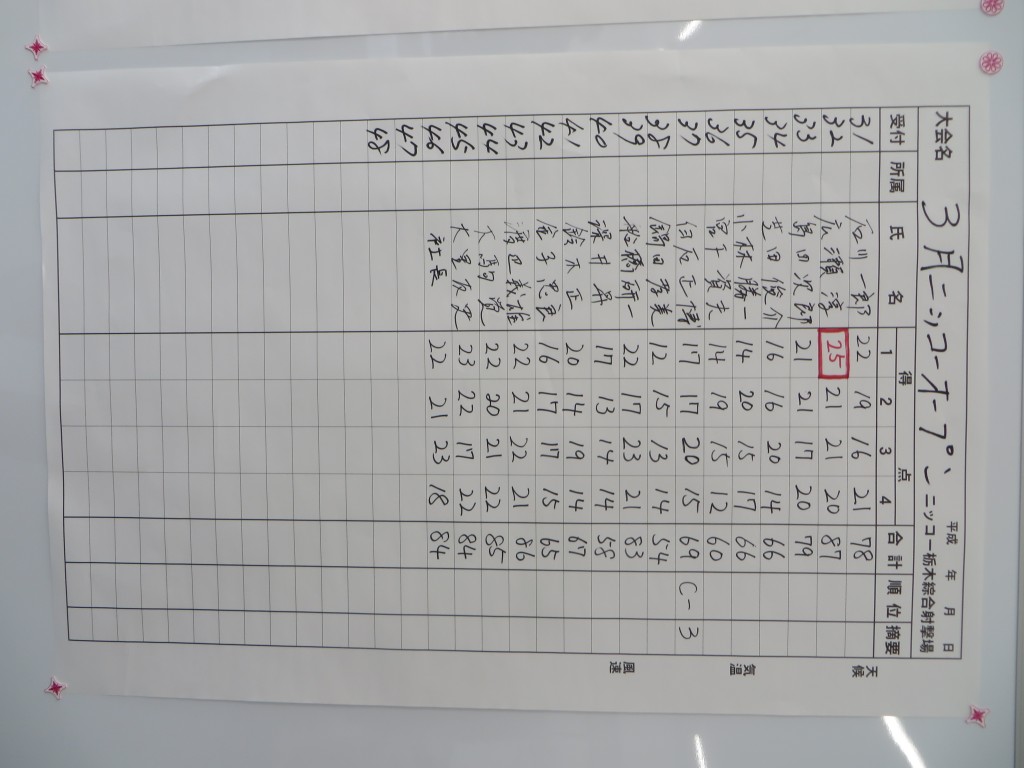 大会名 3月ニッコーオープン ニッコー栃木綜合射撃場
平成 年 月 日
受付 所属 氏名 得点 1 2 3 4 合計 順位 摘要
31 石川一郎 22 19 16 21 78
32 広瀬淳 25 21 21 20 87
33 島田次郎 21 21 17 20 79
34 芝田俊介 16 16 20 14 66
35 小林勝一 14 20 15 17 66
36 宮下資夫 14 19 15 12 60
37 白石正博 17 17 20 15 69 C-3
38 鍋田孝美 12 15 13 14 54
39 松橋研一 22 17 23 21 83
40 井昇 17 13 14 14 58
41 鈴木正 20 14 19 14 67
42 金子忠良 16 17 17 15 65
43 渡邊義雄 22 21 22 21 86
44 22 20 21 22 85
45 大里 史 23 22 17 22 84
46 社長 22 21 23 18 84
47
48
天候
気温
風速